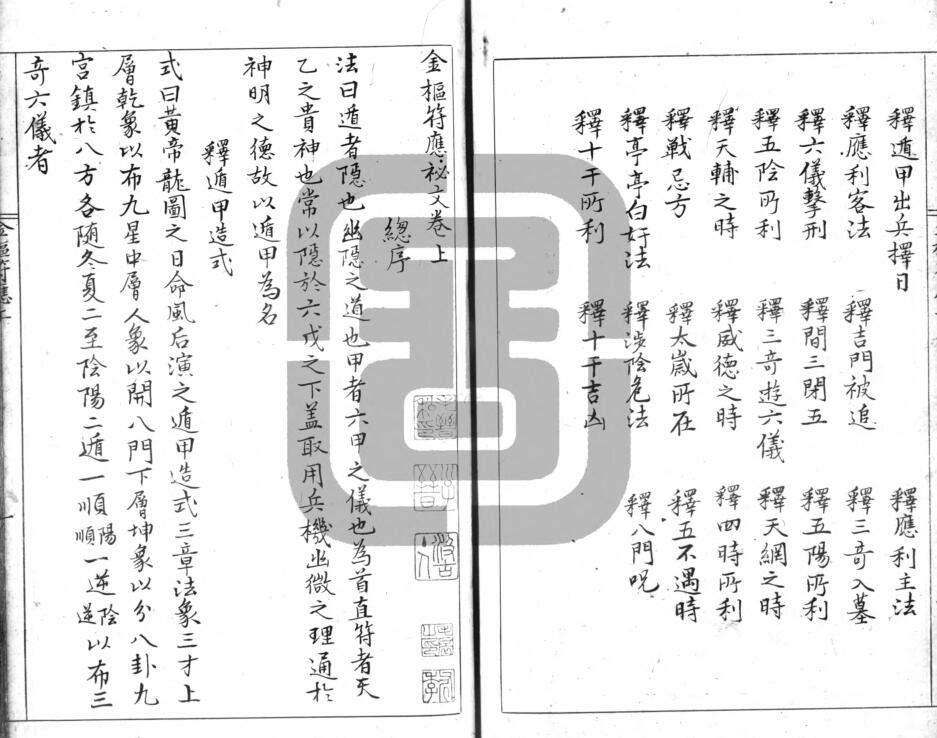 釋遁甲出兵擇日　釋應利主法
釋應利客法　釋吉門被追　釋三奇入墓
釋六儀擊刑　釋間三閉五　釋五陽所利
釋五陰所利　釋三奇遊六儀　釋天網之時
釋天輔之時　釋威德之時　釋四時所利
釋戰忌方　釋太歲所在　釋五不遇時
釋亭亭白奸法　釋涉陰危法　釋八門呪
釋十干所利　釋十干吉凶
金樞符應祕文卷上
總序
法曰遁者隱也幽隱之道也甲者六甲之儀也為首直符者天
乙之貴神也常以隱於六戊之下盖取用兵機幽微之理通於
神明之德故以遁甲為名
釋遁甲造式
式曰黃帝龍圖之日命風后演之遁甲造式三章法象三才上
層乾象以布九星中層人象以開八門下層坤象以分八卦九
宮鎮於八方各随冬夏二至陰陽二遁一順陽順一逆陰逆以布三
奇六儀者